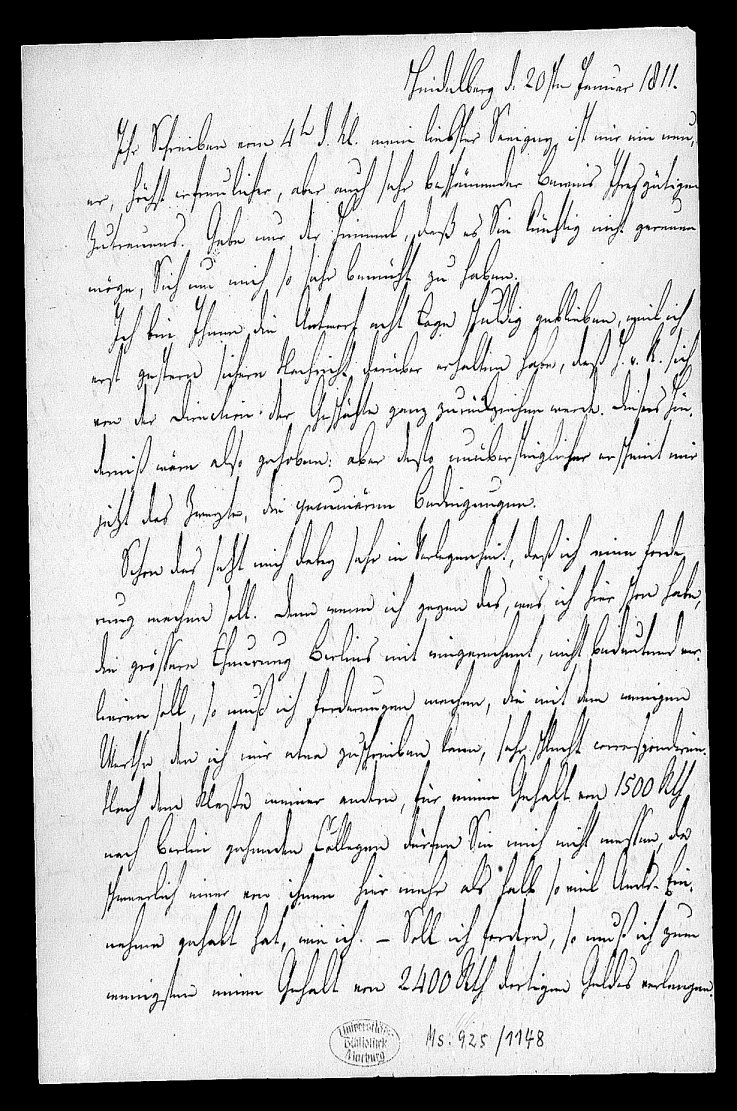 Heidelberg d. 20ſten Januar 1811.
Ihr Schreiben vom 4th d. M. mein liebſter Savigny iſt mir ein neu,
er, höchſt erfreulicher, aber auch ſehr beſchämender Beweis Ihres gütigen
Zutrauens. Gebe nur der Himmel, daß es Sie künftig nicht gereuen
möge, Sich um mich ſo ſehr bemüht zu haben.
Ich bin Ihnen die Antwort acht Tage ſchuldig geblieben, weil ich
erſt geſtern ſichere Nachricht darüber erhalten habe, daß H. v. R. ſich
von der Direction der Geſchäfte ganz zurückziehen werde. Dieſes Hin,
derniß wäre alſo gehoben: aber deſto unüberſteiglicher erſcheint mir
jetzt das Zweyte, die pecuniären Bedingungen.
Schon das ſetzt mich dabey ſehr in Verlegenheit, daß ich eine Forde,
rung machen ſoll. Denn wenn ich gegen das, was ich hier ſchon habe,
die gröſſere Theurung Berlins mit eingerechnet, nicht bedeutend ver,
lieren ſoll, ſo muß ich Forderungen machen, die mit dem wenigen
Werthe den ich mir etwa zuſchreiben kann, ſehr ſchlecht correspondiren.
Nach dem Maßſtabe meiner andern, für einen Gehalt von 1500 Rth
nach Berlin gehenden Collegen dürfen Sie mich nicht meſſen, da
ſchwerlich einer von ihnen hier mehr als halb ſo viel Amts-Ein,
nahme gehabt hat, wie ich. – Soll ich fordern, ſo muß ich zum
wenigſten einen Gehalt von 2400 Rth dortigen Geldes verlangen.
Universitäts-
Bibliothek
Marburg
Ms. 925/1148